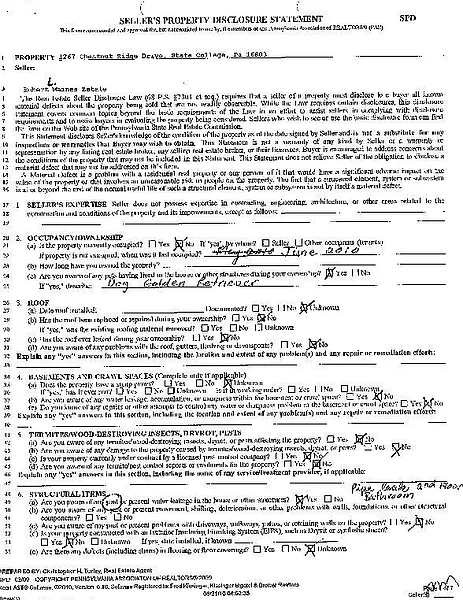 SELLER'S PROPERTY DISCLOSURE STATEMENT SPD
This form recommended and approved for, but not restricted to use by, the members of the Pennsylvania Association of REALTORS® (PAR)
PROPERTY 1267 Chestnut Ridge Drive, State College, PA 16803
Seller:
L.
Robert Estate
The Real Estate Seller Disclosure Law (68 P.S. §7301 et seq.) requires that a seller of property must disclose to a buyer all known
material defects about the property being sold that are not readily observable. While the Law requires certain disclosures, this disclosure
statement covers common topics beyond the basic requirements of the Law in an effort to assist sellers in complying with disclosure
requirements and to assist buyers in evaluating the property being considered. Sellers who wish to see or use the basic disclosure form can find
the form on the Web site of the Pennsylvania State Real Estate Commission.
This Statement discloses Seller's knowledge of the condition of the property as of the date signed by Seller and is not a substitute for any
inspections or warranties that Buyer may wish to obtain. This Statement is not a warranty of any kind by Seller or a warranty or
representation by any listing real estate broker, any selling real estate broker, or their licensees. Buyer is encouraged to address concerns about
the conditions of the property that may not be included in this Statement. This Statement does not relieve Seller of the obligation to disclose a
material defect that may not be addressed on this form.
A Material Defect is a problem with a residential real property or any portion of it that would have a significant adverse impact on the
value of the property or that involves an unreasonable risk to people on the property. The fact that a structural element, system or subsystem
is at or beyond the end of the normal useful life of such a structural element, system or subsystem is not by itself a material defect.
1. SELLER'S EXPERTISE Seller does not possess expertise in contracting, engineering, architecture, or other areas related to the
construction and conditions of the property and its improvements, except as follows:
2. OCCUPANCY/OWNERSHIP
(a) Is the property currently occupied? Yes No If "yes," by whom? Seller Other occupants (tenants)
If property is not occupied, when was it last occupied? June 2010
(b) How long have you owned the property?
(c) Are you aware of any pets having lived in the house or other structures during your ownership? Yes No
If "yes," describe: Dog Golden Retriever
3. ROOF
(a) Date roof installed: Documented? Yes No Unknown
(b) Has the roof been replaced or repaired during your ownership? Yes No
If "yes," was the existing roofing material removed? Yes No Unknown
(c) Has the roof ever leaked during your ownership? Yes No
(d) Are you aware of any problems with the roof, gutters, flashing or downspouts? Yes No
Explain any "yes" answers in this section, including the location and extent of any problem(s) and any repair or remediation efforts:
4. BASEMENTS AND CRAWL SPACES (Complete only if applicable)
(a) Does the property have a sump pump? Yes No Unknown
If "yes," has it ever run? Yes No Unknown Is it in working order? Yes No Unknown
(b) Are you aware of any water leakage, accumulation, or dampness within the basement or crawl space? Yes No
(c) Do you know of any repairs or other attempts to control any water or dampness problem in the basement or crawl space? Yes No
Explain any "yes" answers in this section, including the location and extent of any problem(s) and any repair or remediation efforts:
5. TERMITES/WOOD-DESTROYING INSECTS, DRYROT, PESTS
(a) Are you aware of any termites/wood-destroying insects, dryrot, or pests affecting the property? Yes No
(b) Are you aware of any damage to the property caused by termites/wood-destroying insects, dryrot, or pests? Yes No
(c) Is your property currently under contract by a licensed pest control company? Yes No
(d) Are you aware of any termite/pest control reports or treatments for the property? Yes No
Explain any "yes" answers in this section, including the name of any service/treatment provider, if applicable:
6. STRUCTURAL ITEMS
(a) Are you aware of any past or present water leakage in the house or other structures? Yes No
(b) Are you aware of any past or present movement, shifting, deterioration, or other problems with walls, foundations, or other structural
components? Yes No
(c) Are you aware of any past or present problems with driveways, walkways, patios, or retaining walls on the property? Yes No
(e) Are there any defects (including stains) in flooring or floor coverings? Yes No Unknown
PREPARED BY: Christopher H. Turley, Real Estate Agent
COPYRIGHT PENNSYLVANIA ASSOCIATION OF REALTORS® 2009